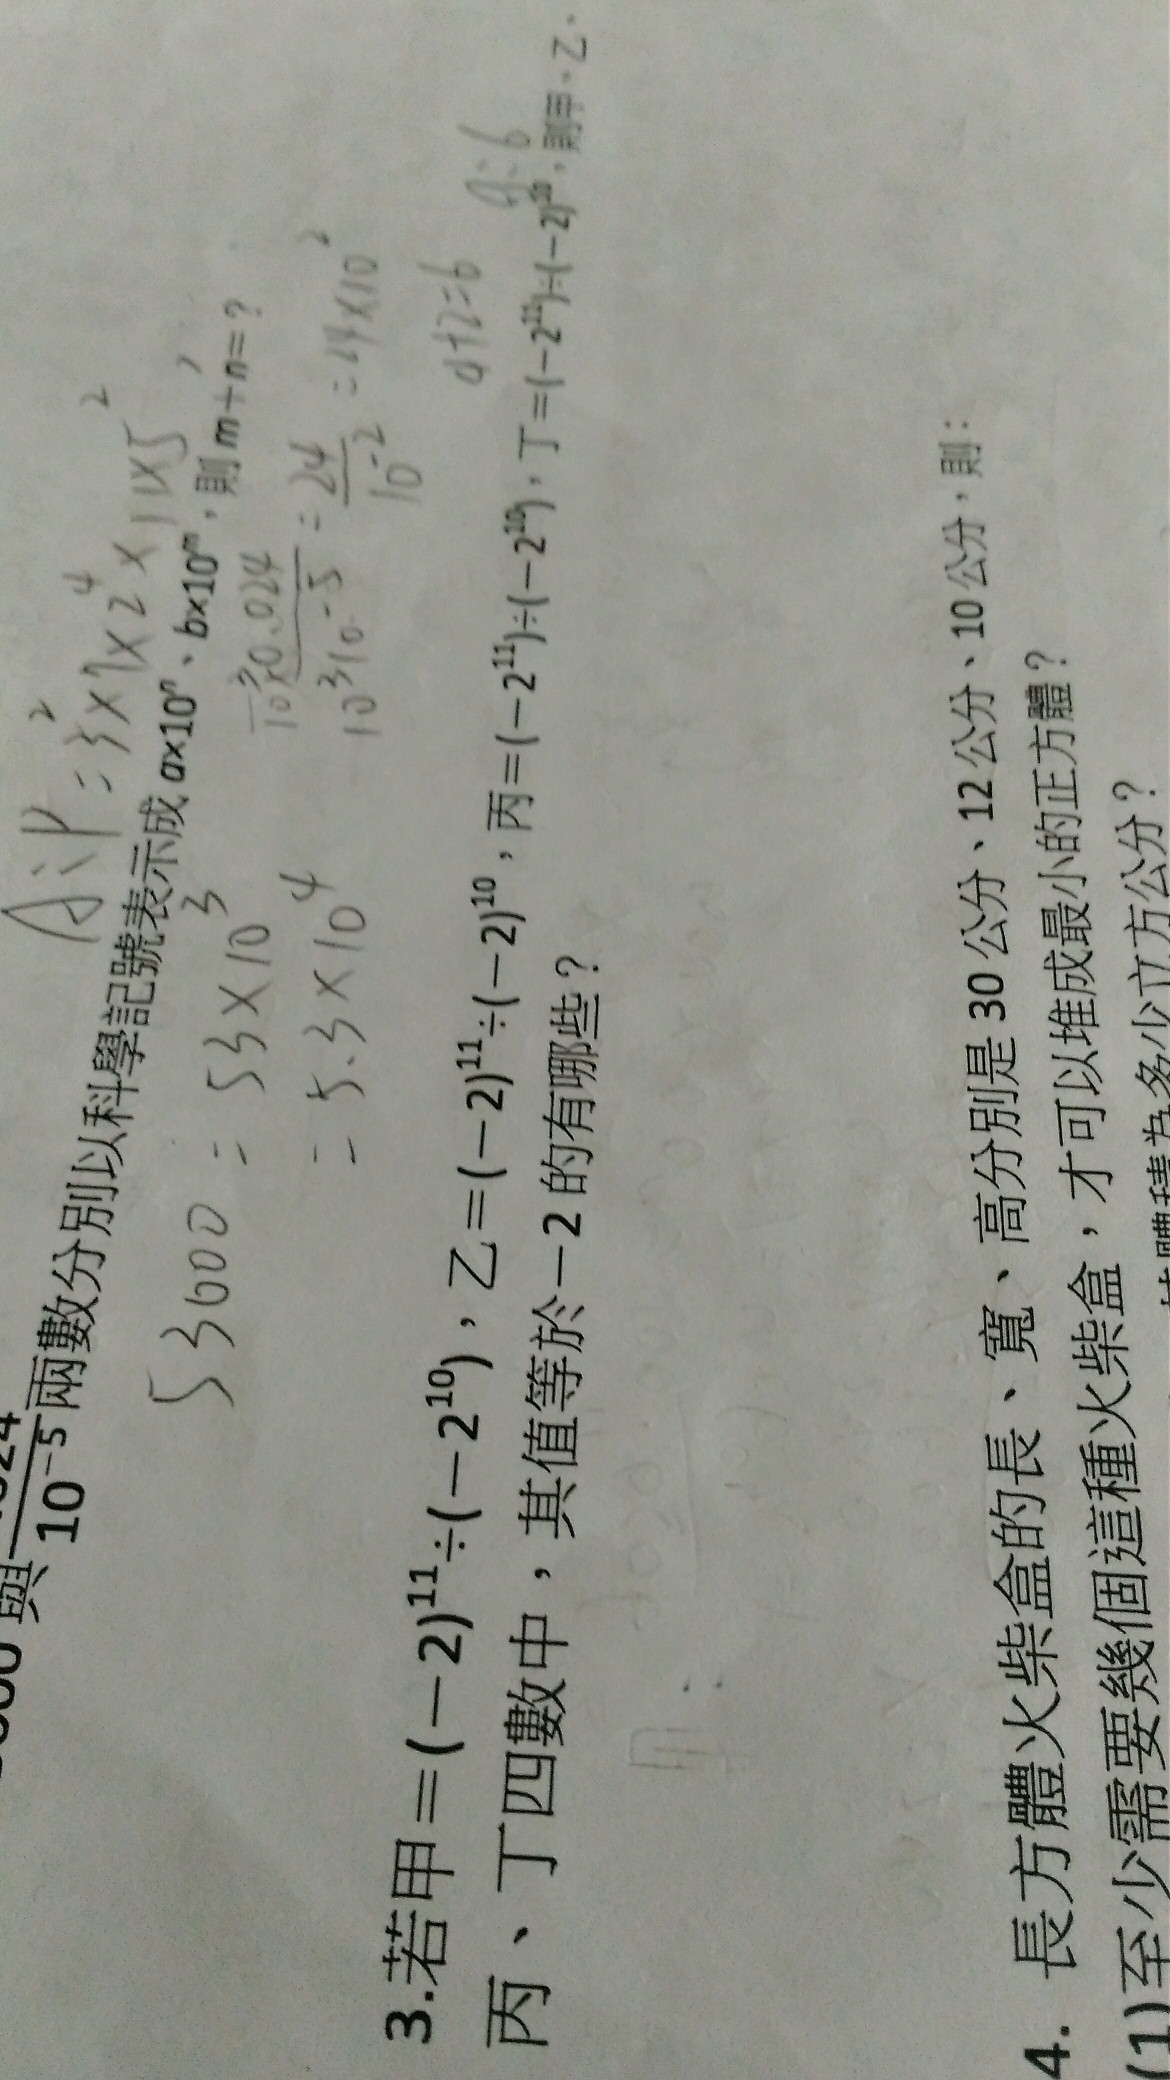 A；P = 3² × 7 × 2⁴ × 11 × 5²
與 10⁻⁵ 兩數分別以科學記號表示成 a×10ⁿ、b×10ᵐ，則 m＋n＝？
53000 = 53 × 10³
= 5.3 × 10⁴
0.024 = 24 = 24 × 10²
10³ 10⁻⁵ 10⁻²
4+2=6
A：6
3.若甲＝(－2)¹¹÷(－2¹⁰)，乙＝(－2)¹¹÷(－2)¹⁰，丙＝(－2¹¹)÷(－2¹⁰)，丁＝(－2¹¹)÷(－2)¹⁰，則甲、乙、
丙、丁四數中，其值等於－2 的有哪些？
4. 長方體火柴盒的長、寬、高分別是 30 公分、12 公分、10 公分，則：
(1)至少需要幾個這種火柴盒，才可以堆成最小的正方體？
體積為多少立方公分？